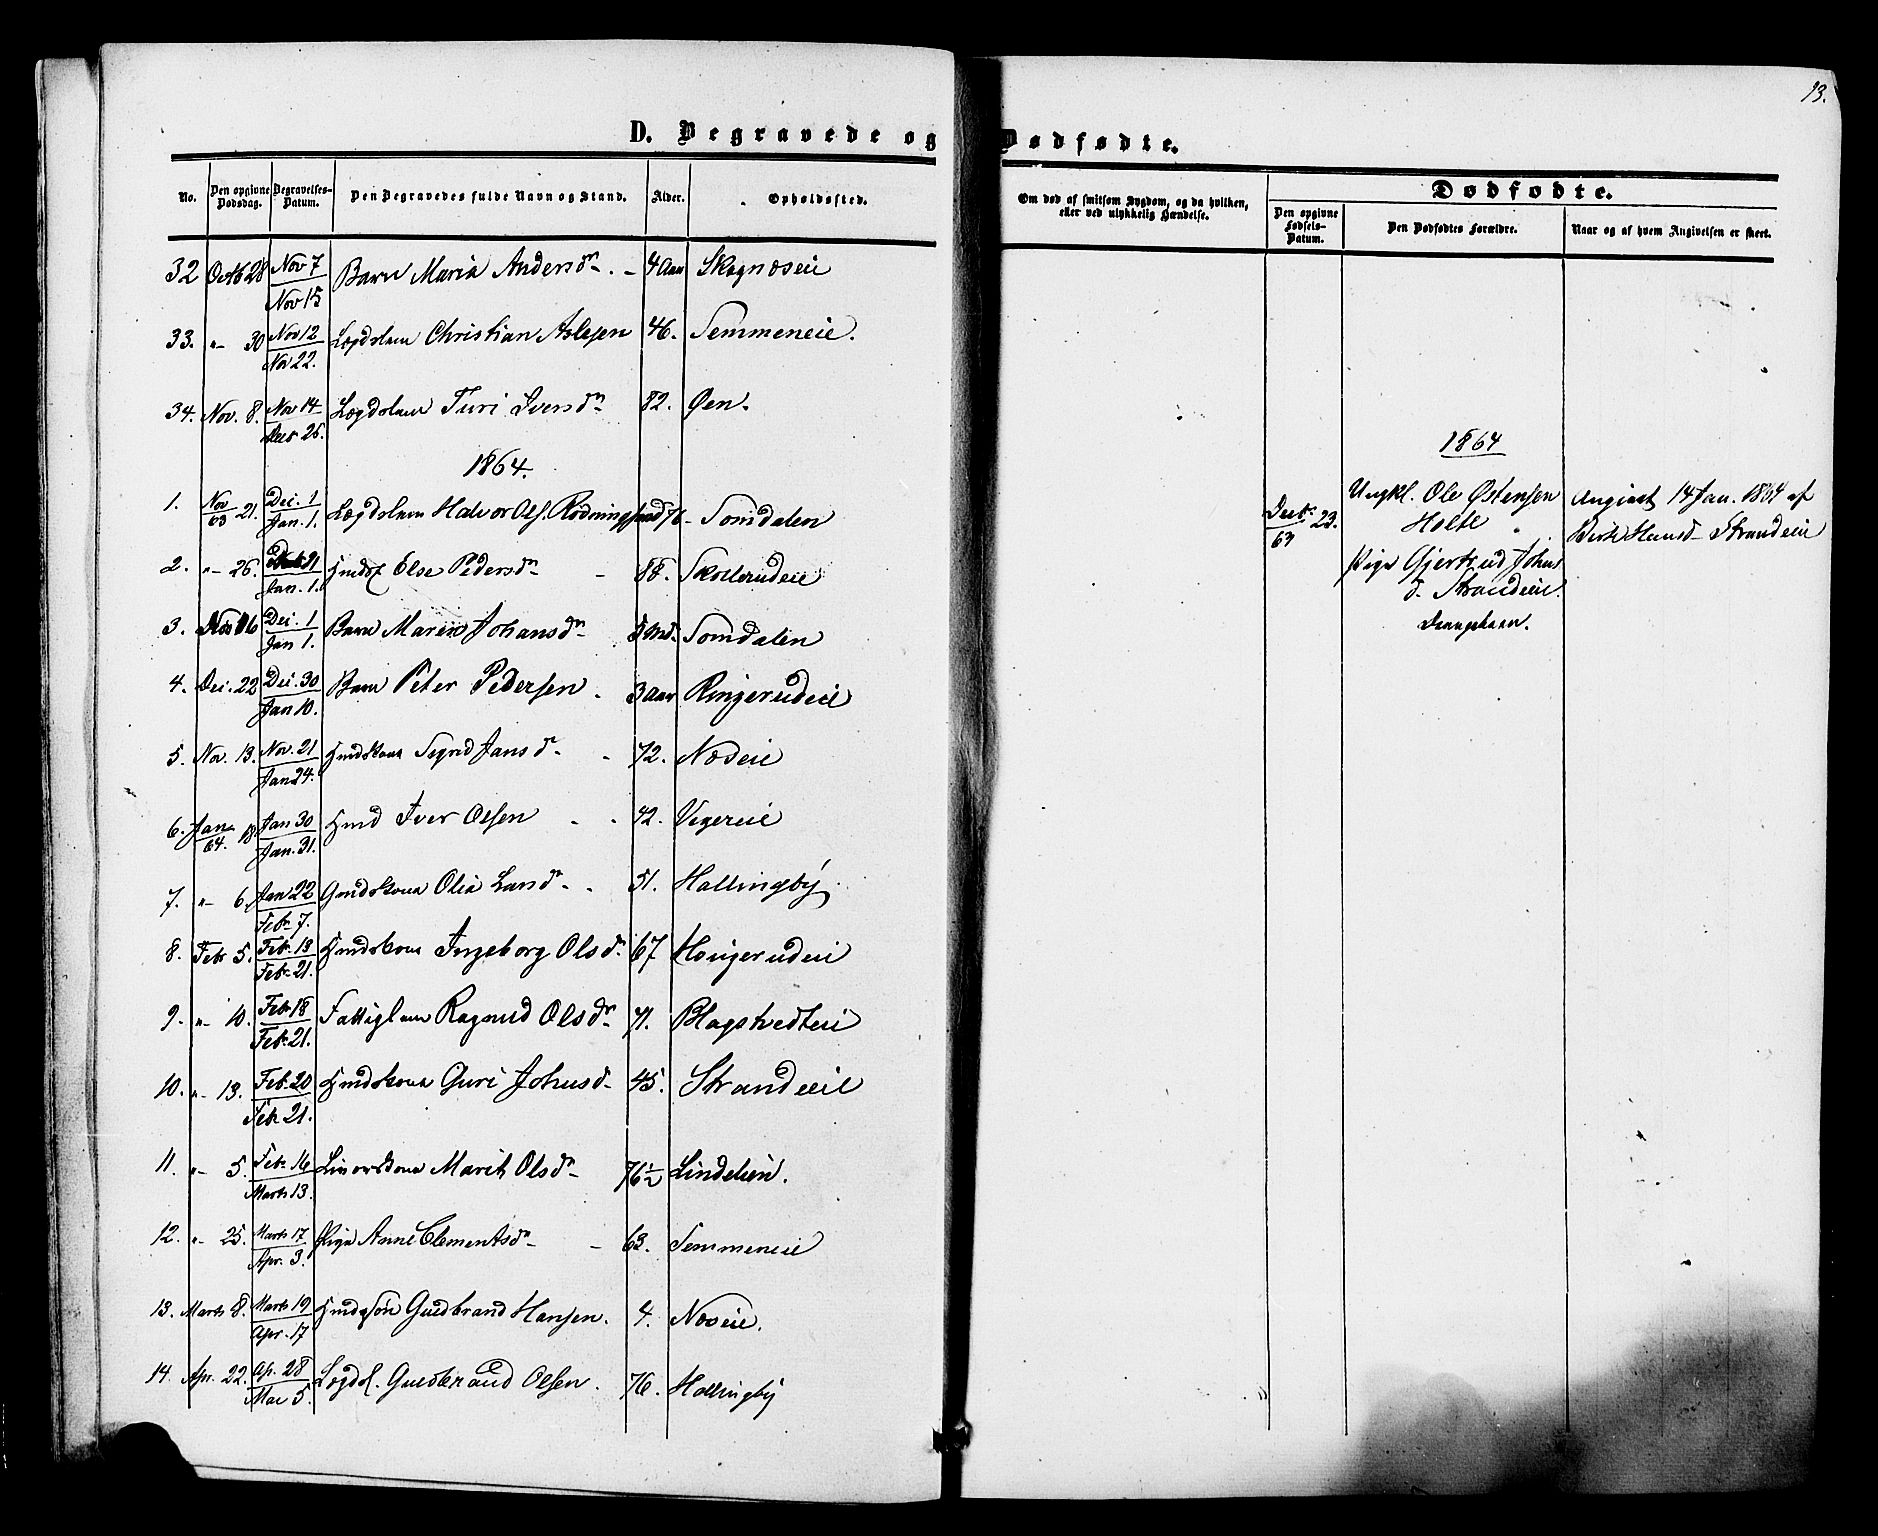 13.
D. Begravede og Dødfødte.
No. Den opgivne Dødsdag. Begravelses-Datum. Den Begravedes fulde Navn og Stand. Alder. Opholdssted.
Om død af smitsom Sygdom, og da hvilken, eller ved ulykkelig Hændelse.
Dødfødte.
Den opgivne Fødsels-Datum. Den Dødfødtes Forældre. Naar og af hvem Angivelsen er skeet.
32 Octb 28 Nov 7 Nov 15 Barn Maria Andersdr 4 Aar Skagnæseie
33. "- 30 Nov 12 Nov 22. Lægdslem Christian Aslesen 46. Semmeneie.
34. Nov. 8. Nov 14 Decb 26. Lægdslem Turi Iversdr 82. Øen.
1864.
1. Nov 63 21. Dec. 1 Jan. 1. Lægdslem Halvor Ols. Rødningsand 76 Somdalen
2. "- 26. Jan. 1. Else Pedersdr 88. Skollerudeie
3. Dec. 1 Jan 1. Barn Maren Johansdr Somdalen
4. Dec. 22 Dec. 30 Jan 10. Barn Peter Pedersen 3 Aar Ringerudeie
5. Nov. 13. Nov. 21 Jan 24. Hmdskone Sigrid Jansdr 72. Næseie
6. Jan 64. 18. Jan 30 Jan. 31. Hmd Iver Olsen 42. Vegereie
7. "- 6. Jan 22 Feb. 7. Gmdskone Olia Larsdr 51. Hallingby.
8. Febr 5. Feb. 13 Feb. 21. Hmdskone Ingeborg Olsdr 67 Hougerudeie
9. "- 10. Feb. 18 Feb. 21. Fattiglem Ragnild Olsdr 71. Blagstvedteie
10. "- 13. Feb. 20 Feb. 21. Hmdskone Guri Johnsd 45. Strandeeie
11. "- 5. Feb. 16 Marts 13. Marit Olsdr 76½ Lindelien.
12. "- 25. Marts 17 Apr. 3. Pige Anne Clementsdr 63. Semmeneie
13. Marts 8. Marts 19 Apr. 17 Hmdssøn Guldbrand Hansen. 4. Næseie.
14. Apr. 22. Ap. 28 Mai 5. Lægdsl. Guldbrand Olsen. 76. Hallingby
1864
Decb. 63 23. Ungkl. Ole Østensen Angivet 14 Jan. 1864 af
Holte Berte Hansd Strandeie
Pige Gjertrud Johns
d. Strandeie.
Drengebarn.